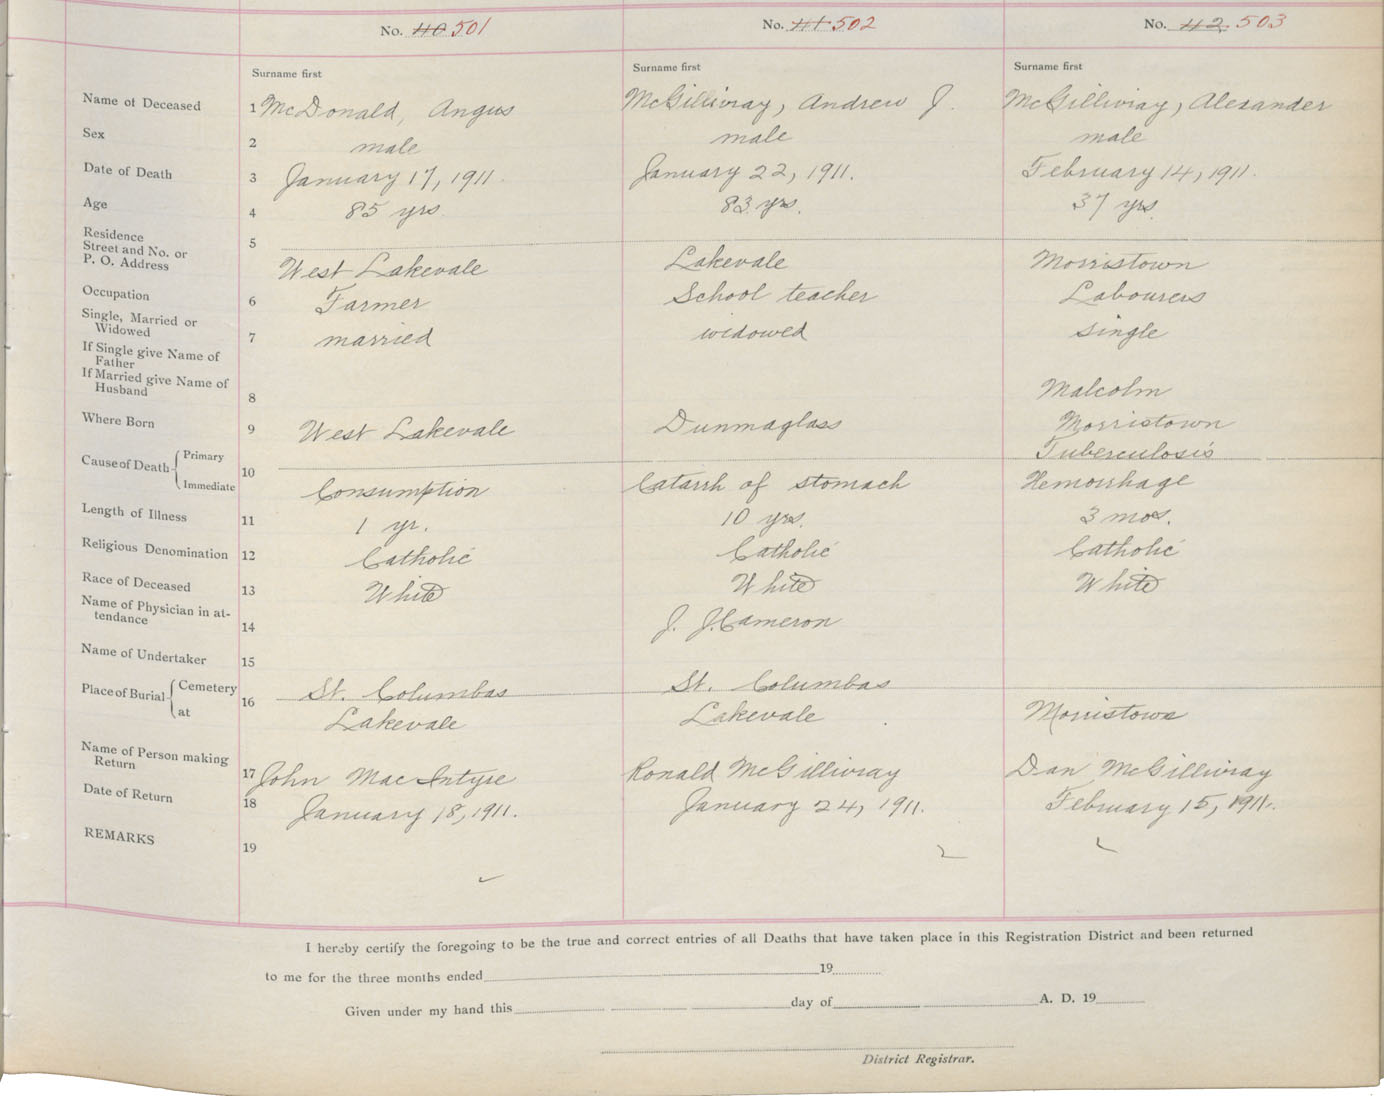 No. 40 501 No. 41 502 No. 42 503
Surname first Surname first Surname first
Name of Deceased 1 McDonald, Angus McGillivray, Andrew J. McGillivray, Alexander
Sex 2 male male male
Date of Death 3 January 17, 1911. January 22, 1911. February 14, 1911.
Age 4 85 yrs. 83 yrs. 37 yrs.
Residence
Street and No. or 5
P. O. Address West Lakevale Lakevale Morristown
Occupation 6 Farmer School teacher Labourers
Single, Married or
Widowed 7 married widowed single
If Single give Name of
Father
If Married give Name of
Husband 8 Malcolm
Where Born 9 West Lakevale Dunmaglass Morristown
Cause of Death Primary 10 Tuberculosis
Immediate Consumption Catarrh of stomach Hemorrhage
Length of Illness 11 1 yr. 10 yrs. 3 mos.
Religious Denomination 12 Catholic Catholic Catholic
Race of Deceased 13 White White White
Name of Physician in at-
tendance 14 J. J. Cameron
Name of Undertaker 15
Place of Burial Cemetery 16 St. Columbas St. Columbas
at Lakevale Lakevale Morristown
Name of Person making
Return 17 John MacIntyre Ronald McGillivray Dan McGillivray
Date of Return 18 January 18, 1911. January 24, 1911. February 15, 1911.
REMARKS 19
I hereby certify the foregoing to be the true and correct entries of all Deaths that have taken place in this Registration District and been returned
to me for the three months ended 19
Given under my hand this day of A. D. 19
District Registrar.